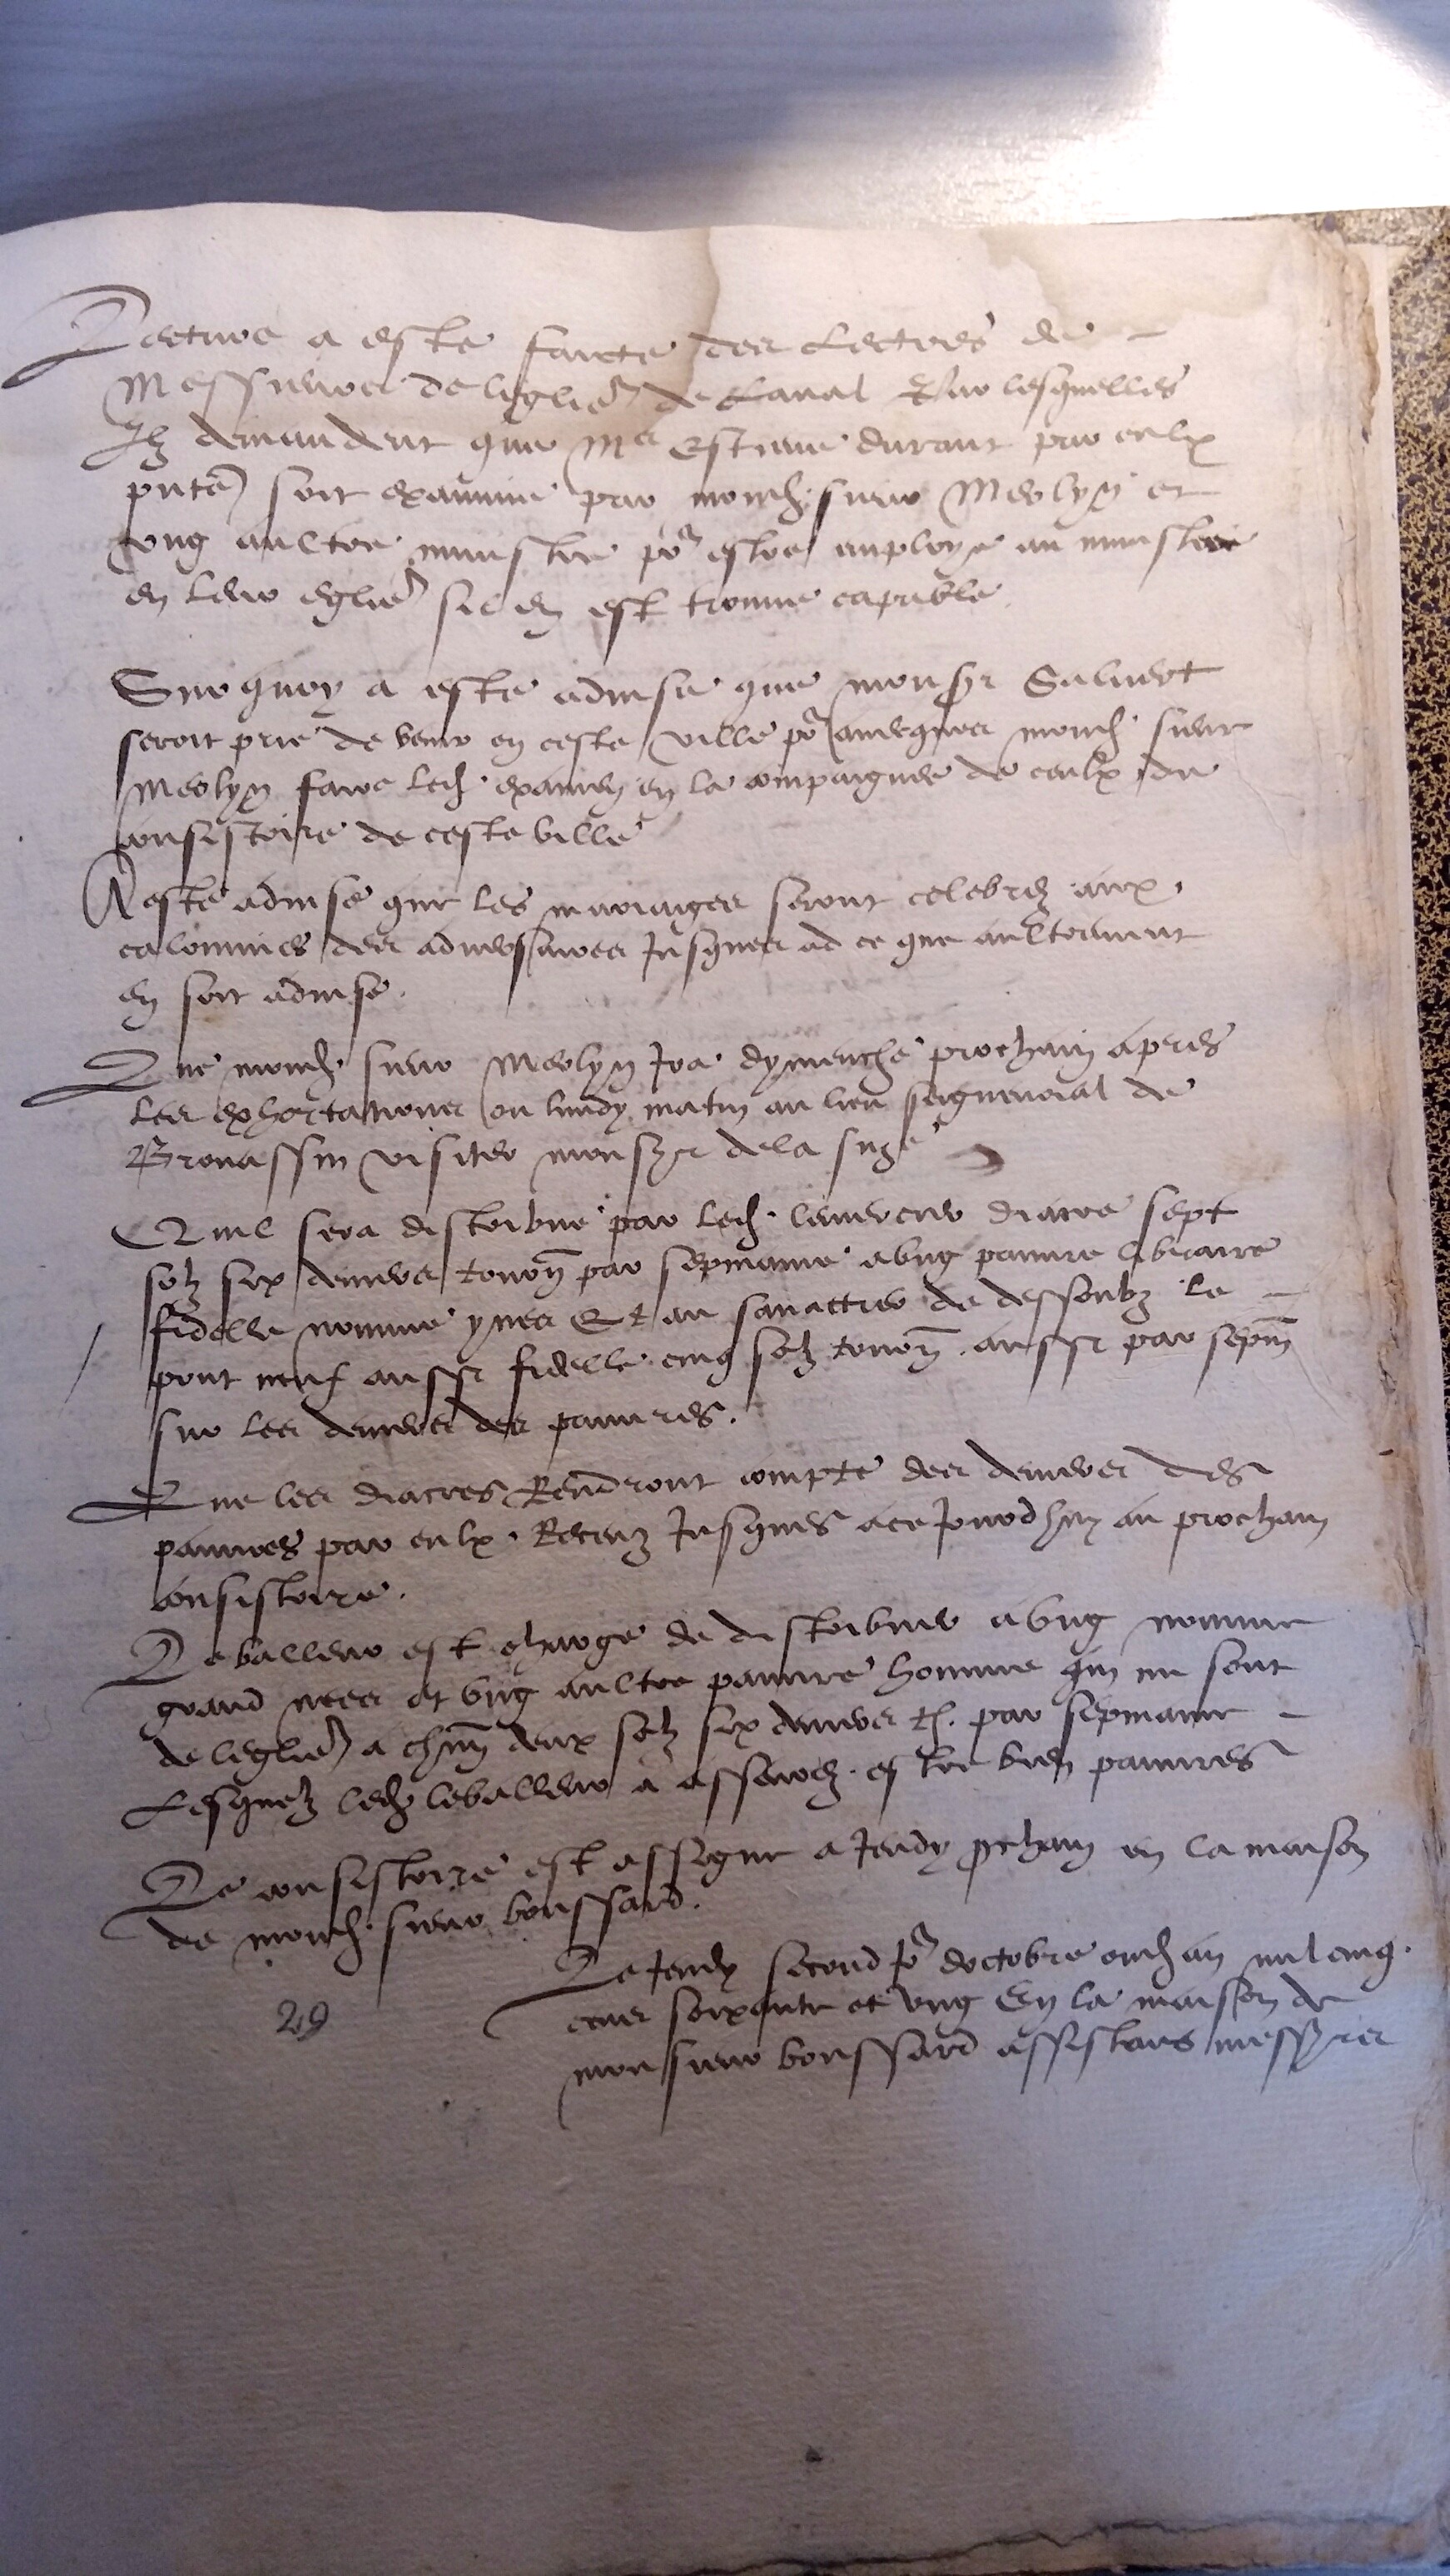 Lecture a este faicte des lectres de
Messieurs de leglise de Laval Par lesquelles
Ilz demandent que Me Estienne durant par eulx
pnte soit examine par mond. sieur Merlyn et
ung aultre ministre po estre employe au ministere
en leur eglise sil en est trouve capable.
Sur quoy a este advise que monsr Saluert
seroit prie de venir en ceste ville po avecques mond. sieur
Merlyn faire led. examen en la compaignee de ceulx du
consistoire de ceste ville
A este advise que les mariages seront celebrez aux
calomnies des adversaires Jusques ad ce que aultrement
en soit advise.
Que mond. sieur Merlyn Ira dymenche prochain apres
les exhortations ou lundy matin au lieu seigneurial de
Brouassin visiter monsr de la suze
Quil sera distribue par led. diacre sept
solz six deniers tourn par sepmaine a ung pauvre libraire
fidelle nomme yves Et au savactier de dessoubz le
pont neuf aussi fidelle cinq solz tourn. aussi par sepm
sur les deniers des pauvres.
Que les diacres Rendront compte des deniers des
pauvres par eulx Receuz Jusques a ce Jourdhuy au prochain
consistoire.
Levalleur est charge de distribuer a ung nomme
grand et ung aultre pauvre homme qui ne sont
de leglise a chun deux solz six deniers t. par sepmaine
Lesquelz led. levalleur a asseurez estre bien pauvres
Le consistoire est assigne a Jeudy pchain en la maison
de mond. sieur boussard.
Le Jeudy second Jo doctobre oud. an mil cinq
cens soixante et ung En la maison de
monsieur boussard assistans messrs
29